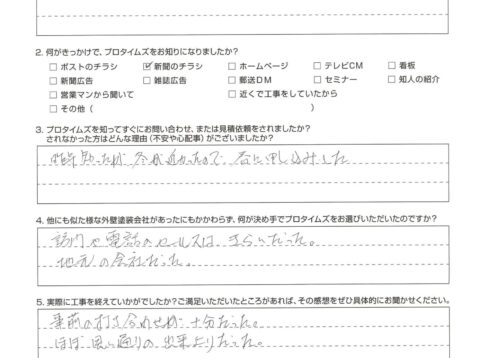 2. 何がきっかけで、プロタイムズをお知りになりましたか?
□ ポストのチラシ ☑ 新聞のチラシ □ ホームページ □ テレビCM □ 看板
□ 新聞広告 □ 雑誌広告 □ 郵送DM □ セミナー □ 知人の紹介
□ 営業マンから聞いて □ 近くで工事をしていたから
□ その他 ( )
3. プロタイムズを知ってすぐにお問い合わせ、または見積依頼をされましたか?
されなかった方はどんな理由(不安や心配事)がございましたか?
知ったが 冬が近かったので 春に申し込みした
4. 他にも似た様な外壁塗装会社があったにもかかわらず、何が決め手でプロタイムズをお選びいただいたのですか?
訪問や電話のセールスは、きらいだった。
地元の会社だった。
5. 実際に工事を終えていかがでしたか?ご満足いただいたところがあれば、その感想をぜひ具体的にお聞かせください。
事前の打ち合わせが十分だった。
ほぼ思い通りの出来上りだった。